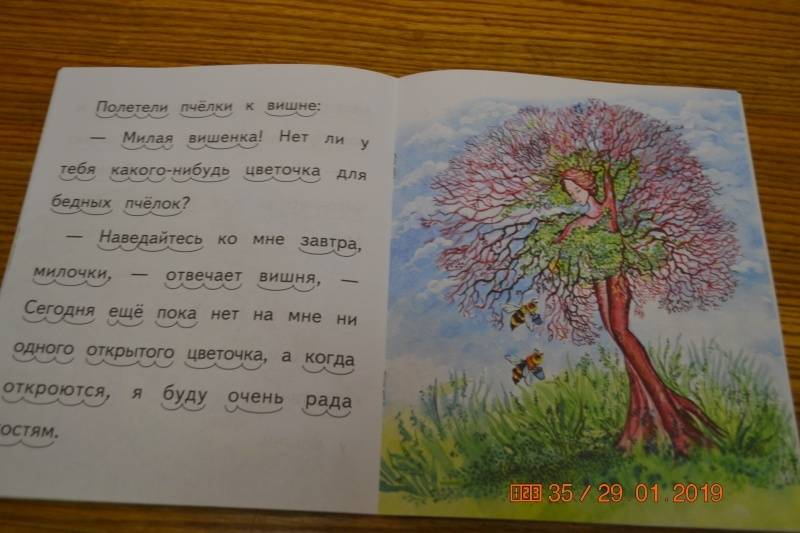 Полетели пчёлки к вишне:
— Милая вишенка! Нет ли у
тебя какого-нибудь цветочка для
бедных пчёлок?
— Наведайтесь ко мне завтра,
милочки, — отвечает вишня, —
Сегодня ещё пока нет на мне ни
одного открытого цветочка, а когда
откроются, я буду очень рада
остям.
35 / 29 01.2019